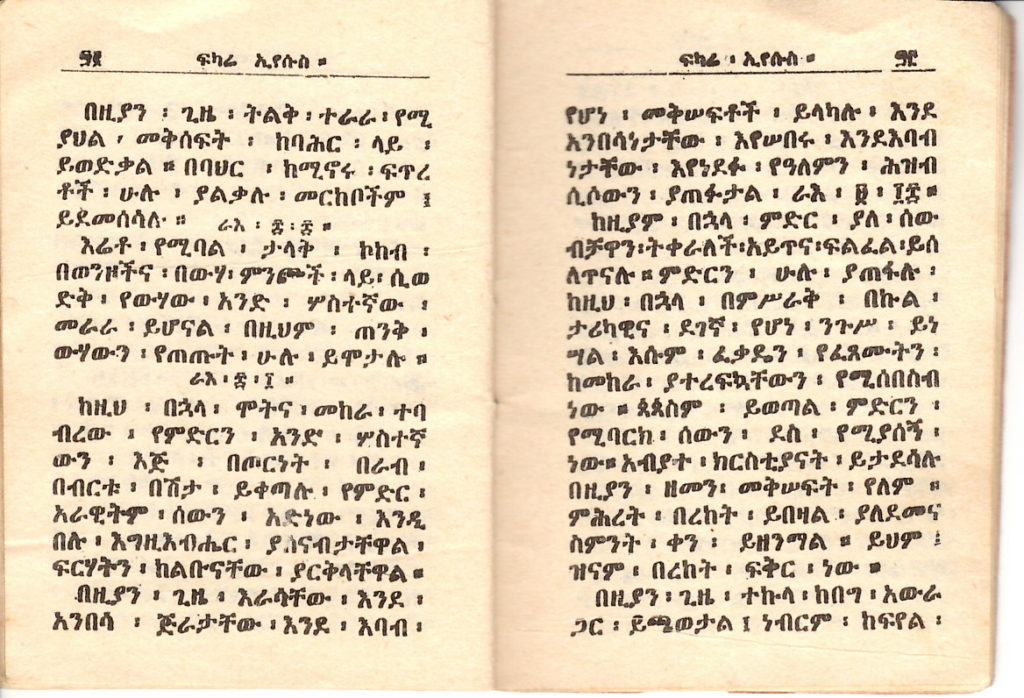 ፶፩ ፍካሬ ኢየሱስ ።
በዚያን ፡ ጊዜ ፡ ትልቅ ፡ ተራራ ፡ የሚ
ያህል ፡ መቅሰፍት ፡ ከባሕር ፡ ላይ ፡
ይወድቃል ። በባህር ፡ ከሚኖሩ ፡ ፍጥረ
ቶች ፡ ሁሉ ፡ ያልቃሉ ፡ መርከቦችም ፤
ይደመሰሳሉ ። ራእ ፡ ፰ ፡ ፰ ።
እሬቶ ፡ የሚባል ፡ ታላቅ ፡ ኮከብ ፡
በወንዞችና ፡ በውሃ ፡ ምንጮች ፡ ላይ ፡ ሲወ
ድቅ ፡ የውሃው ፡ አንድ ፡ ሦስተኛው ፡
መራራ ፡ ይሆናል ፡ በዚህም ፡ ጠንቅ ፡
ውሃውን ፡ የጠጡት ፡ ሁሉ ፡ ይሞታሉ ።
ራእ ፡ ፰ ፡ ፲ ።
ከዚህ ፡ በኋላ ፡ ሞትና ፡ መከራ ፡ ተባ
ብረው ፡ የምድርን ፡ አንድ ፡ ሦስተኛ
ውን ፡ እጅ ፡ በጦርነት ፡ በራብ ፡
በብርቱ ፡ በሽታ ፡ ይቀጣሉ ፡ የምድር ፡
አራዊትም ፡ ሰውን ፡ አድነው ፡ እንዲ
በሉ ፡ እግዚእብሔር ፡ ያሰናብታቸዋል ፡
ፍርሃትን ፡ ከልቡናቸው ፡ ያርቅላቸዋል ።
በዚያን ፡ ጊዜ ፡ እራሳቸው ፡ እንደ ፡
አንበሳ ፡ ጅራታቸው ፡ እንደ ፡ እባብ ፡
ፍካሬ ፡ ኢየሱስ ።
የሆነ ፡ መቅሠፍቶች ፡ ይላካሉ ፡ እንደ
አንበሳነታቸው ፡ እየሠበሩ ፡ እንደእባብ
ነታቸው ፡ እየነደፉ ፡ የዓለምን ፡ ሕዝብ
ሲሶውን ፡ ያጠፉታል ፡ ራእ ፡ ፱ ፡ ፲፰ ።
ከዚያም ፡ በኋላ ፡ ምድር ፡ ያለ ፡ ሰው
ብቻዋን ፡ ትቀራለች ፡ አይጥና ፡ ፍልፈል ፡ ይሰ
ለጥናሉ ። ምድርን ፡ ሁሉ ፡ ያጠፋሉ ፡
ከዚህ ፡ በኋላ ፡ በምሥራቅ ፡ በኩል ፡
ታሪካዊና ፡ ደገኛ ፡ የሆነ ፡ ንጉሥ ፡ ይነ
ግሣል ፡ እሱም ፡ ፈቃዴን ፡ የፈጸሙትን ፡
ከመከራ ፡ ያተረፍኳቸውን ፡ የሚሰበስብ
ነው ። ጳጳስም ፡ ይወጣል ፡ ምድርን ፡
የሚባርክ ፡ ሰውን ፡ ደስ ፡ የሚያሰኝ ፡
ነው ። አብያተ ፡ ክርስቲያናት ፡ ይታደሳሉ
በዚያን ፡ ዘመን ፡ መቅሠፍት ፡ የለም ።
ምሕረት ፡ በረከት ፡ ይበዛል ፡ ያለደመና
ስምንት ፡ ቀን ፡ ይዘንማል ። ይህም ፡
ዝናም ፡ በረከት ፡ ፍቅር ፡ ነው ።
በዚያን ፡ ጊዜ ፡ ተኩላ ፡ ከበግ ፡ አውራ
ጋር ፡ ይጫወታል ፤ ነብርም ፡ ከፍየል ፡